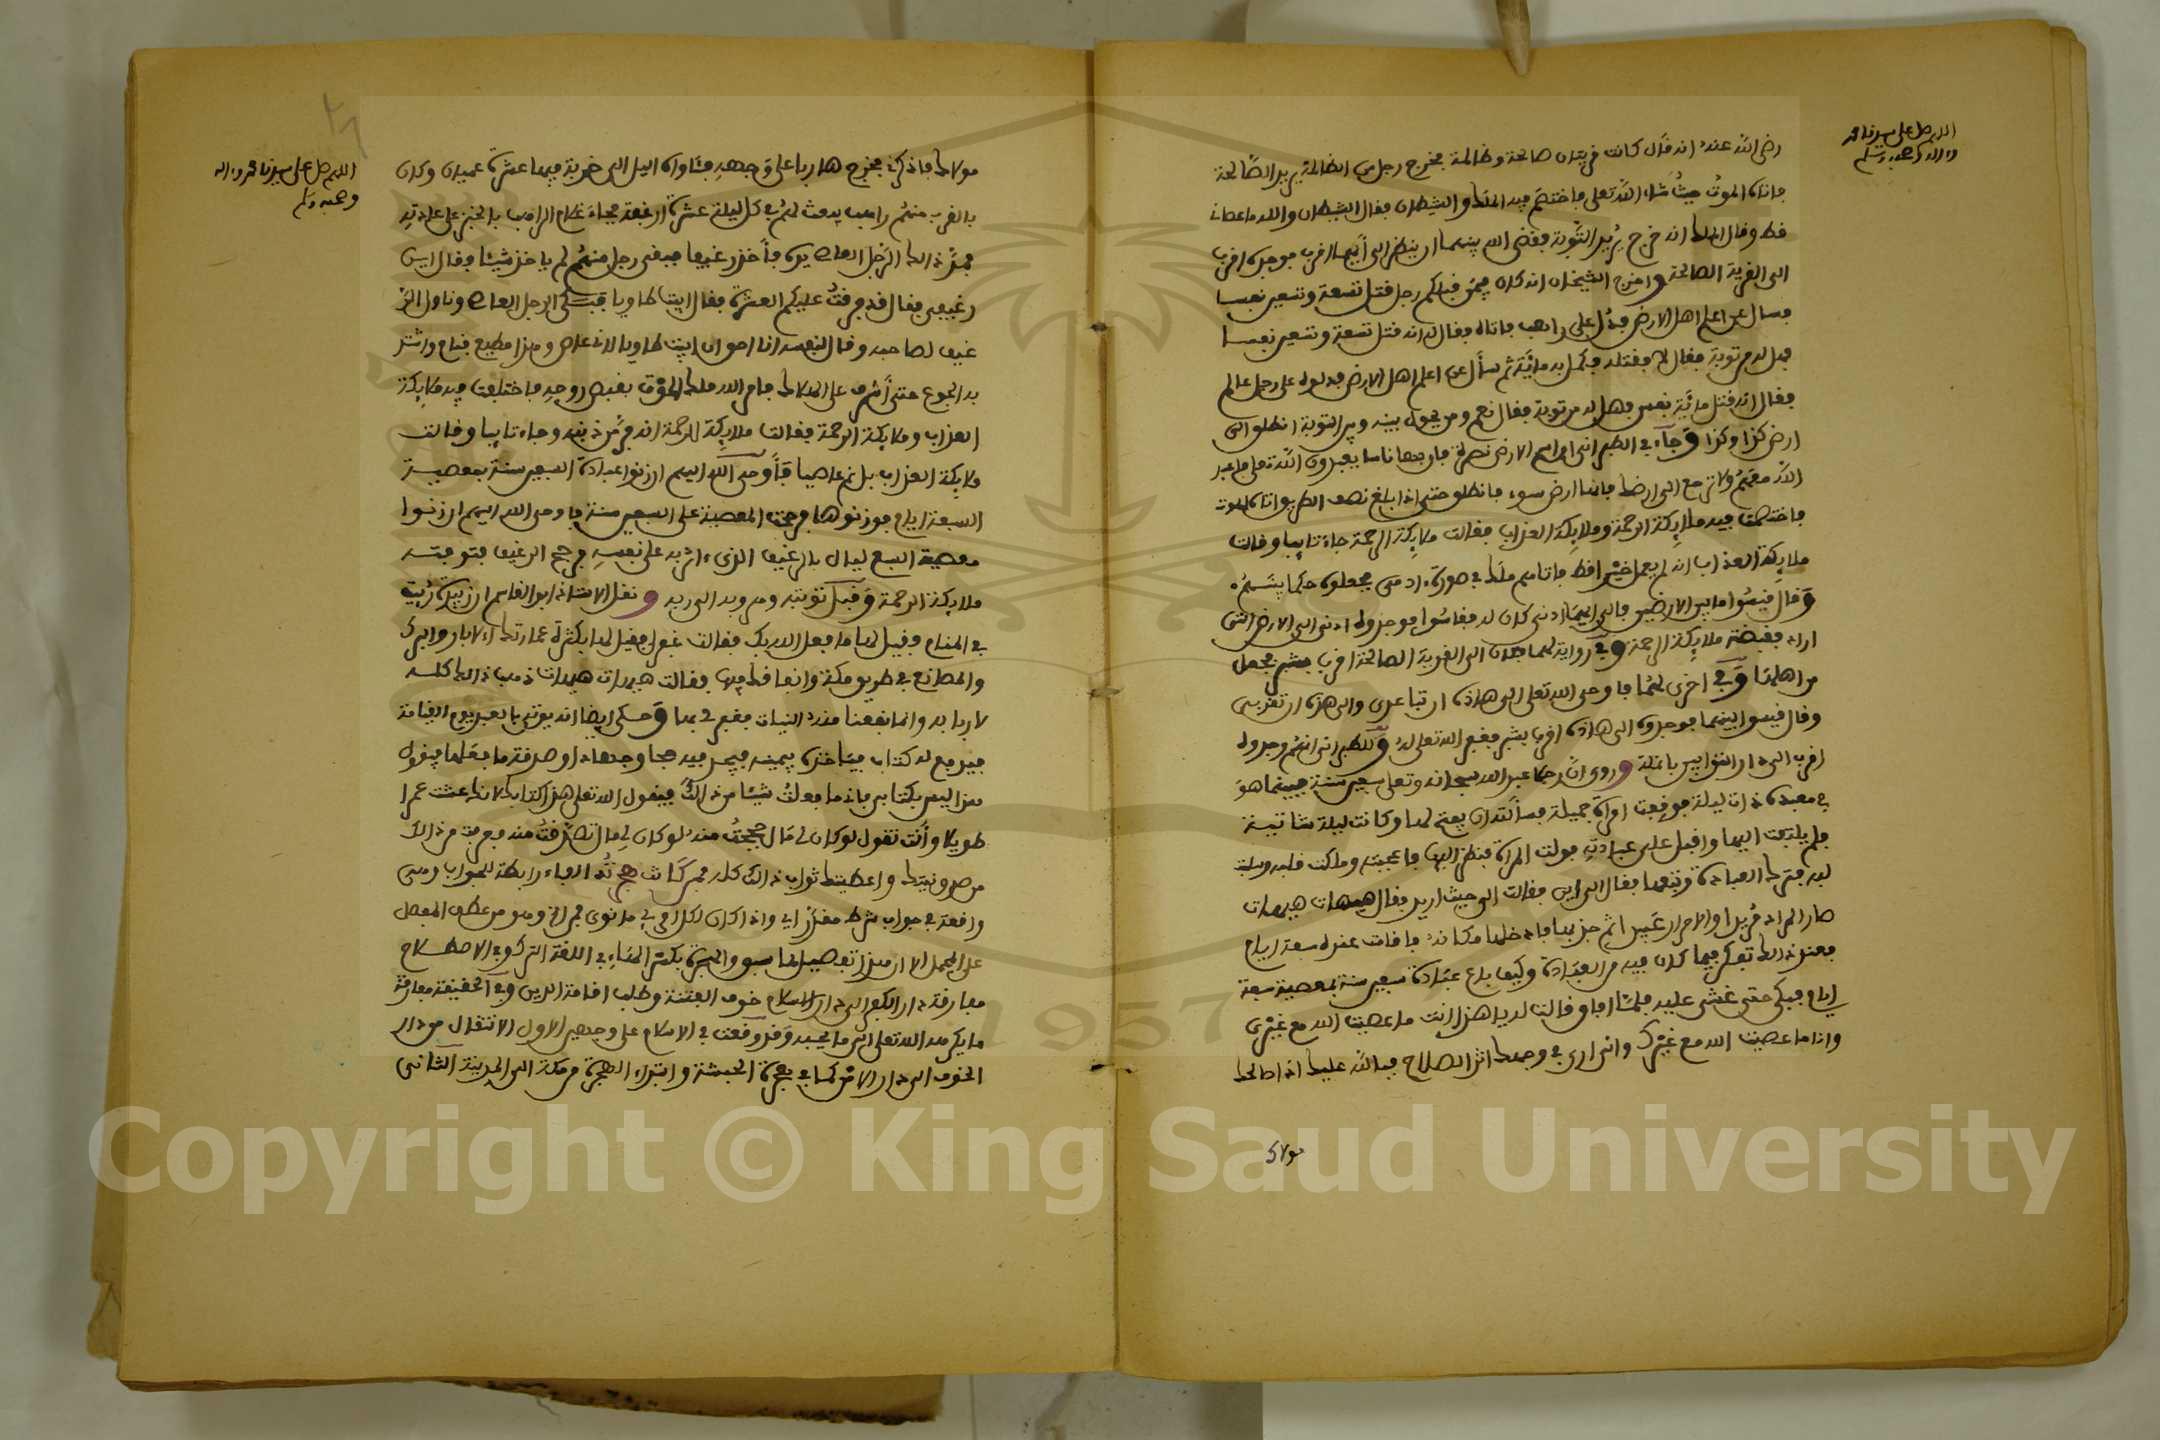 اللهم صل على سيدنا محمد
وءاله وصحبه وسلم
رضى الله عنه انه قال كانت قريتان صالحة وظالمة فخرج رجل من الظالمة يريد الصالحة
فاتاه الموت حيث شاء الله تعلى فاختصم فيه الملك والشيطان فقال الشيطان والله ما عصانى
قط وقال الملك انه خرج يريد التوبة فقضى الله بينهما ان ينظر الى أيهما اقرب فوجدوه اقرب
الى القرية الصالحة واخرج الشيخان انه كان فيمن قبلكم رجل قتل تسعة وتسعين نفسا
فسال عن اعلم اهل الارض فدل على راهب فاتاه فقال له انه قتل تسعة وتسعين نفسا
فهل له من توبة فقال لا فقتله فكمل به مائة ثم سأل عن اعلم اهل الارض فدلوه على رجل عالم
فقال انه قتل مائة نفس فهل له من توبة فقال نعم ومن يحول بينه وبين التوبة انطلق الى
ارض كذا وكذا فان بها ناسا يعبدون الله تعلى فاعبد
الله معهم ولا ترجع الى ارضك فانها ارض سوء فانطلق حتى اذا بلغ نصف الطريق اتاه الموت
فاختصمت فيه ملائكة الرحمة وملائكة العذاب فقالت ملائكة الرحمة جاء تايبا وقالت
ملايكة العذاب انه لم يعمل خيرا قط فاتاهم ملك في صورة ءادمى فجعلوه حكما بينهم
وقال قيسوا ما بين الارضين فالى ايهما ادنى كان له فقاسوا فوجدوه ادنى الى الارض التى
اراد فقبضته ملايكة الرحمة وفى رواية لهما فكان الى القرية الصالحة اقرب بشبر فجعل
من اهلها وفى اخرى لهما فاوحى الله تعلى الى هاذه ان تباعدى والى هذه ان تقربى
وقال قيسوا بينهما فوجدوه الى هاذه اقرب بشبر فغفر الله تعلى له وللطبرانى انهم وجدوه
اقرب الى دار التوابين بانملة وروى ان رجلا عبد الله سبحانه وتعلى سبعين سنة فبينما هو
في معبده ذات ليلة فوقفت امراة جميلة فسألته ان يفتح لها وكانت ليلة شاتية
فلم يلتفت اليها واقبل على عبادته فولت المراة فنظر اليها فاعجبته وملكت قلبه وسلبت
لبه فترك العبادة وتبعها فقال الى اين فقالت الى حيث اريد فقال هيهات هيهات
صار المراد مريدا والاحرار عبيدا ثم جذبها فادخلها مكانه فاقامت عنده سبعة ايام
فعند ذالك تفكر فيما كان فيه من العبادة وكيف باع عبادة سبعين سنة بمعصية سبعة
ايام فبكى حتى غشى عليه فلما افاق قالت له يا هذا انت ما عصيت الله مع غيرى
وانا ما عصيت الله مع غيرك وانى ارى في وجهك اثر الصلاح فبالله عليك اذا صالحك
مولاك
اللهم صل على سيدنا محمد وءاله
وصحبه وسلم
مولاك فاذكرنى فخرج هاربا على وجهه فئاواه اليل الى خربة فيها عشرة عميان وكان
بالقرب منهم راهب يبعث لهم في كل ليلة عشرة ارغفة فجاء غلام الراهب بالخبز على عادته
فمد ذالك الرجل العاصى يده فأخذ رغيفا فبقى رجل منهم لم ياخذ شيئا فقال اين
رغيفى فقال قد فرقت عليكم العشرة فقال ابيت طاويا فبكى الرجل العاصى وناول الر
غيف لصاحبه وقال لنفسه انا احق ان ابيت طاويا لانى عاص وهذا مطيع فنام واشتد
به الجوع حتى أشرف على الهلاك فامر الله ملك الموت بقبض روحه فاختلفت فيه ملايكة
العذاب وملايكة الرحمة فقالت ملايكة الرحمة انه فر من ذنبه وجاء تايبا وقالت
ملايكة العذاب بل هو عاص فأوحى الله اليهم ان زنوا عبادة السبعين سنة بمعصية
السبعة ايام فوزنوها فرجحت المعصية على السبعين سنة فاوحى الله اليهم ان زنوا
معصية السبع ليال بالرغيف الذى ءاثر به على نفسه فرجح الرغيف فتوفته
ملايكة الرحمة وقبل توبته وردوه الى ربه ونقل الاستاذ ابو القاسم ان زبيدة رئيت
في المنام فقيل لها ما فعل الله بك فقالت غفر لى فقيل لها بكثرة عمارتك الابار والبرك
والمصانع في طريق مكة وانفاقك فيها فقالت هيهات هيهات ذهب ذالك كله
لاربابه وانما نفعنا منه النيات فغفر لى بها وحكى ايضا انه يوتى بالعبد يوم القيامة
فيدفع له كتاب فياخذه بيمينه فيجد فيه حجا وجهادا وصدقة ما فعلها فيقول
هذا ليس بكتابى فانى ما فعلت شيئا من ذالك فيقول الله تعلى هذا كتابك لانك عشت عمرا
طويلا وأنت تقول لو كان لى مال حججت منه لو كان لى مال تصدقت منه فعرفت ذالك
من صدق نيتك واعطيتك ثواب ذالك كله فمن كانت هجرته الفاء رابطة للجواب وهى
واقعة في جواب شرط مقدر اى واذا كان لكل امرئ ما نوى فمن الخ وهو من عطف المفصل
على المجمل لان هذا تفصيل لما سبق والهجرة بكسر الهاء في اللغة الترك وفى الاصطلاح
مفارقة دار الكفر الى دار الاسلام خوف الفتنة وطلب اقامة الدين وفى الحقيقة مفارقة
ما يكرهه الله تعلى الى ما يحبه وقد وقعت في الاسلام على وجهين الاول الانتقال من دار
الخوف الى دار الامن كما في هجرة الحبشة وابتداء الهجرة من مكة الى المدينة الثانى
Copyright © King Saud University
1957